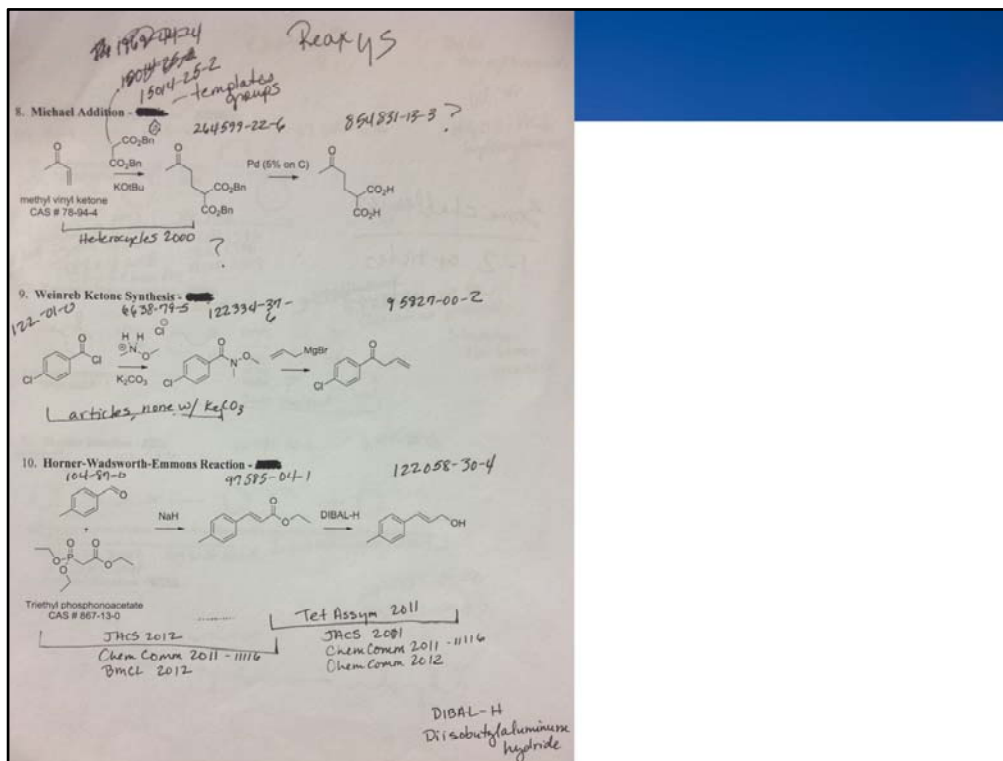 Reaxys
15014-25-2
templates
groups
8. Michael Addition -
264599-22-6
854831-13-3 ?
CO₂Bn
CO₂Bn
KOtBu
O
CO₂Bn
CO₂Bn
Pd (5% on C)
O
CO₂H
CO₂H
methyl vinyl ketone
CAS # 78-94-4
Heterocycles 2000
?
9. Weinreb Ketone Synthesis -
122-01-0
6638-79-5
122334-37-6
95827-00-2
O
Cl
Cl
H H
N O
Cl
K₂CO₃
O
N O
Cl
MgBr
O
Cl
articles, none w/ K₂CO₃
10. Horner-Wadsworth-Emmons Reaction -
104-87-0
97585-04-1
122058-30-4
O
+
NaH
O
O
DIBAL-H
OH
O P O
O O
Triethyl phosphonoacetate
CAS # 867-13-0
JACS 2012
Chem Comm 2011 - 11116
BMCL 2012
Tet Assym 2011
JACS 2001
Chem Comm 2011 - 11116
Chem Comm 2012
DIBAL-H
Diisobutylaluminum
hydride